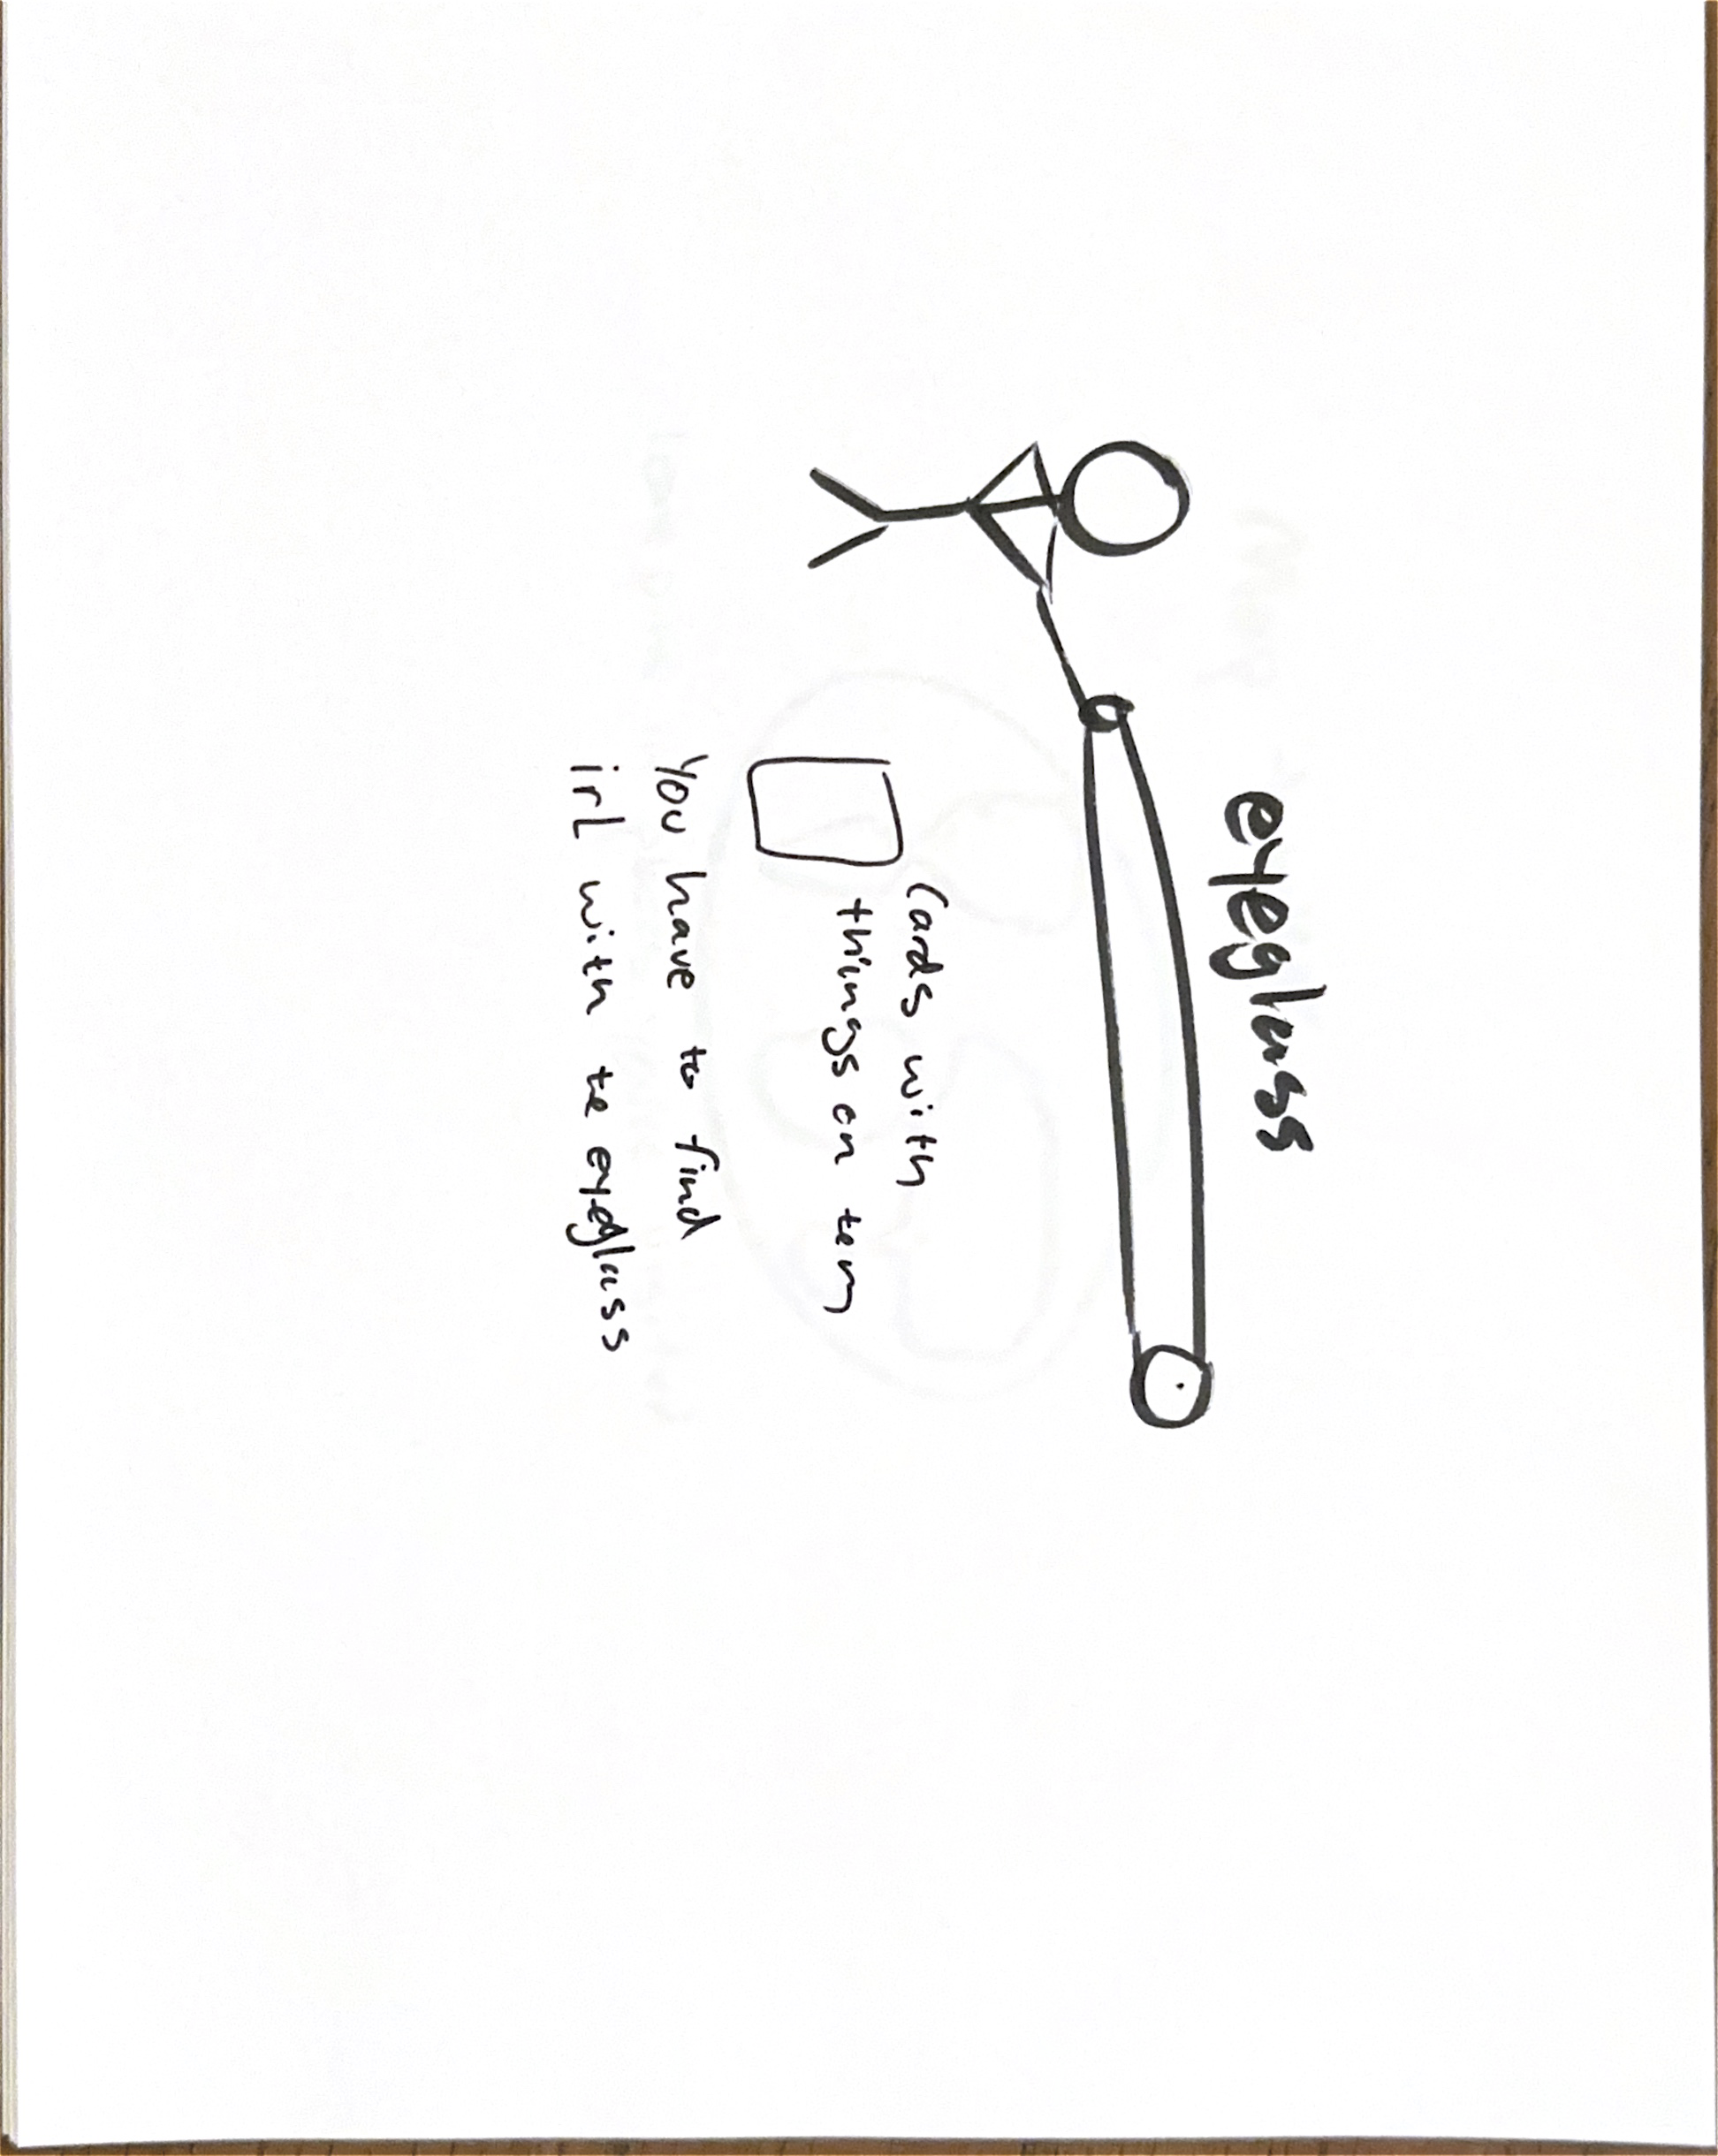 eyeglass
Cards with
things on tem
You have to find
irl with te eyeglass